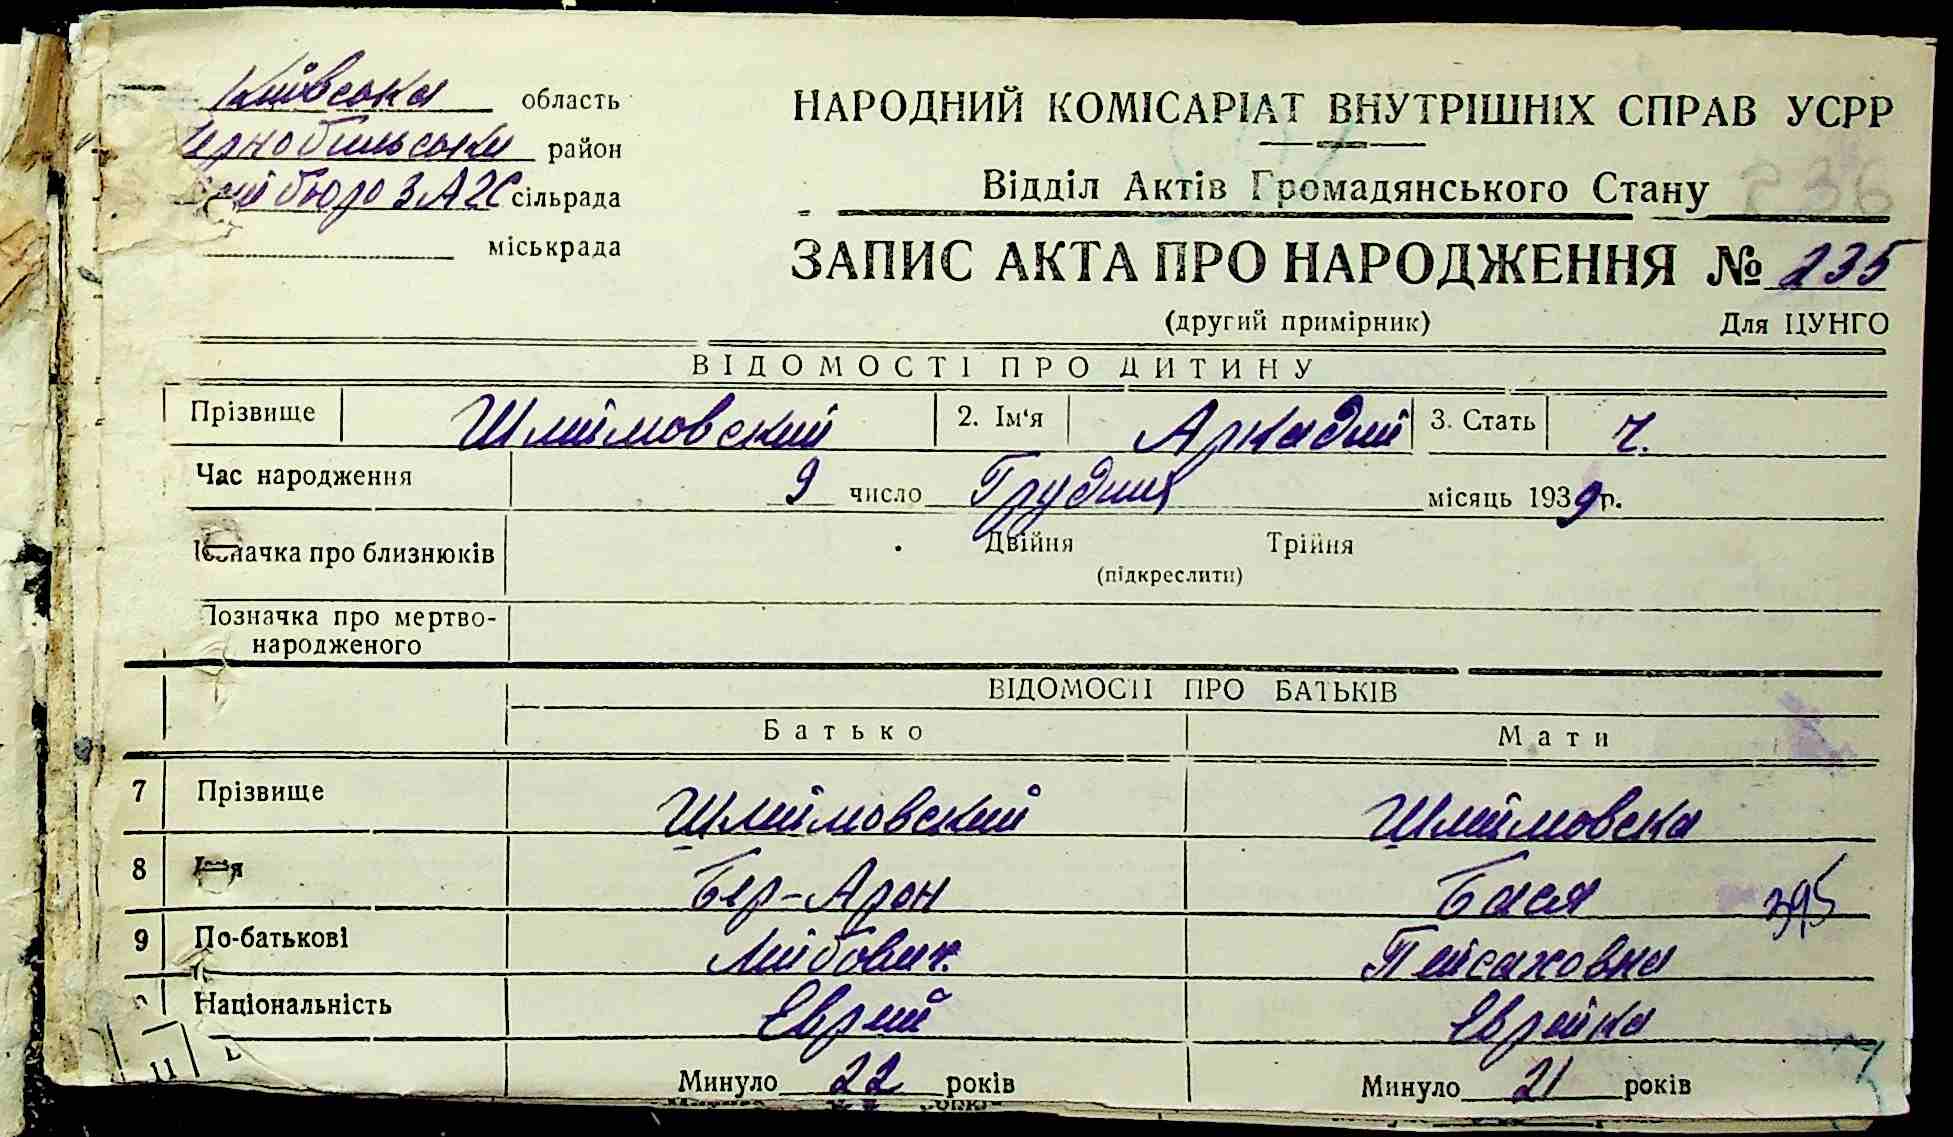 Київська область
Чорнобильський район
бюро ЗАГС сільрада
міськрада
НАРОДНИЙ КОМІСАРІАТ ВНУТРІШНІХ СПРАВ УСРР
Відділ Актів Громадянського Стану 236
ЗАПИС АКТА ПРО НАРОДЖЕННЯ № 235
(другий примірник) Для ЦУНГО
ВІДОМОСТІ ПРО ДИТИНУ
Прізвище Шлиймовский 2. Ім'я Аркадий 3. Стать ч.
Час народження 9 число Грудня місяць 1939 р.
Позначка про близнюків Двійня Трійня
(підкреслити)
Позначка про мертво-
народженого
ВІДОМОСТІ ПРО БАТЬКІВ
Батько Мати
7 Прізвище Шлиймовский Шлиймовска
8 Ім'я Бер-Арон Бася 395
9 По-батькові Лейбович. Пейсаховна
Національність Еврей Еврейка
11 Минуло 22 років Минуло 21 років